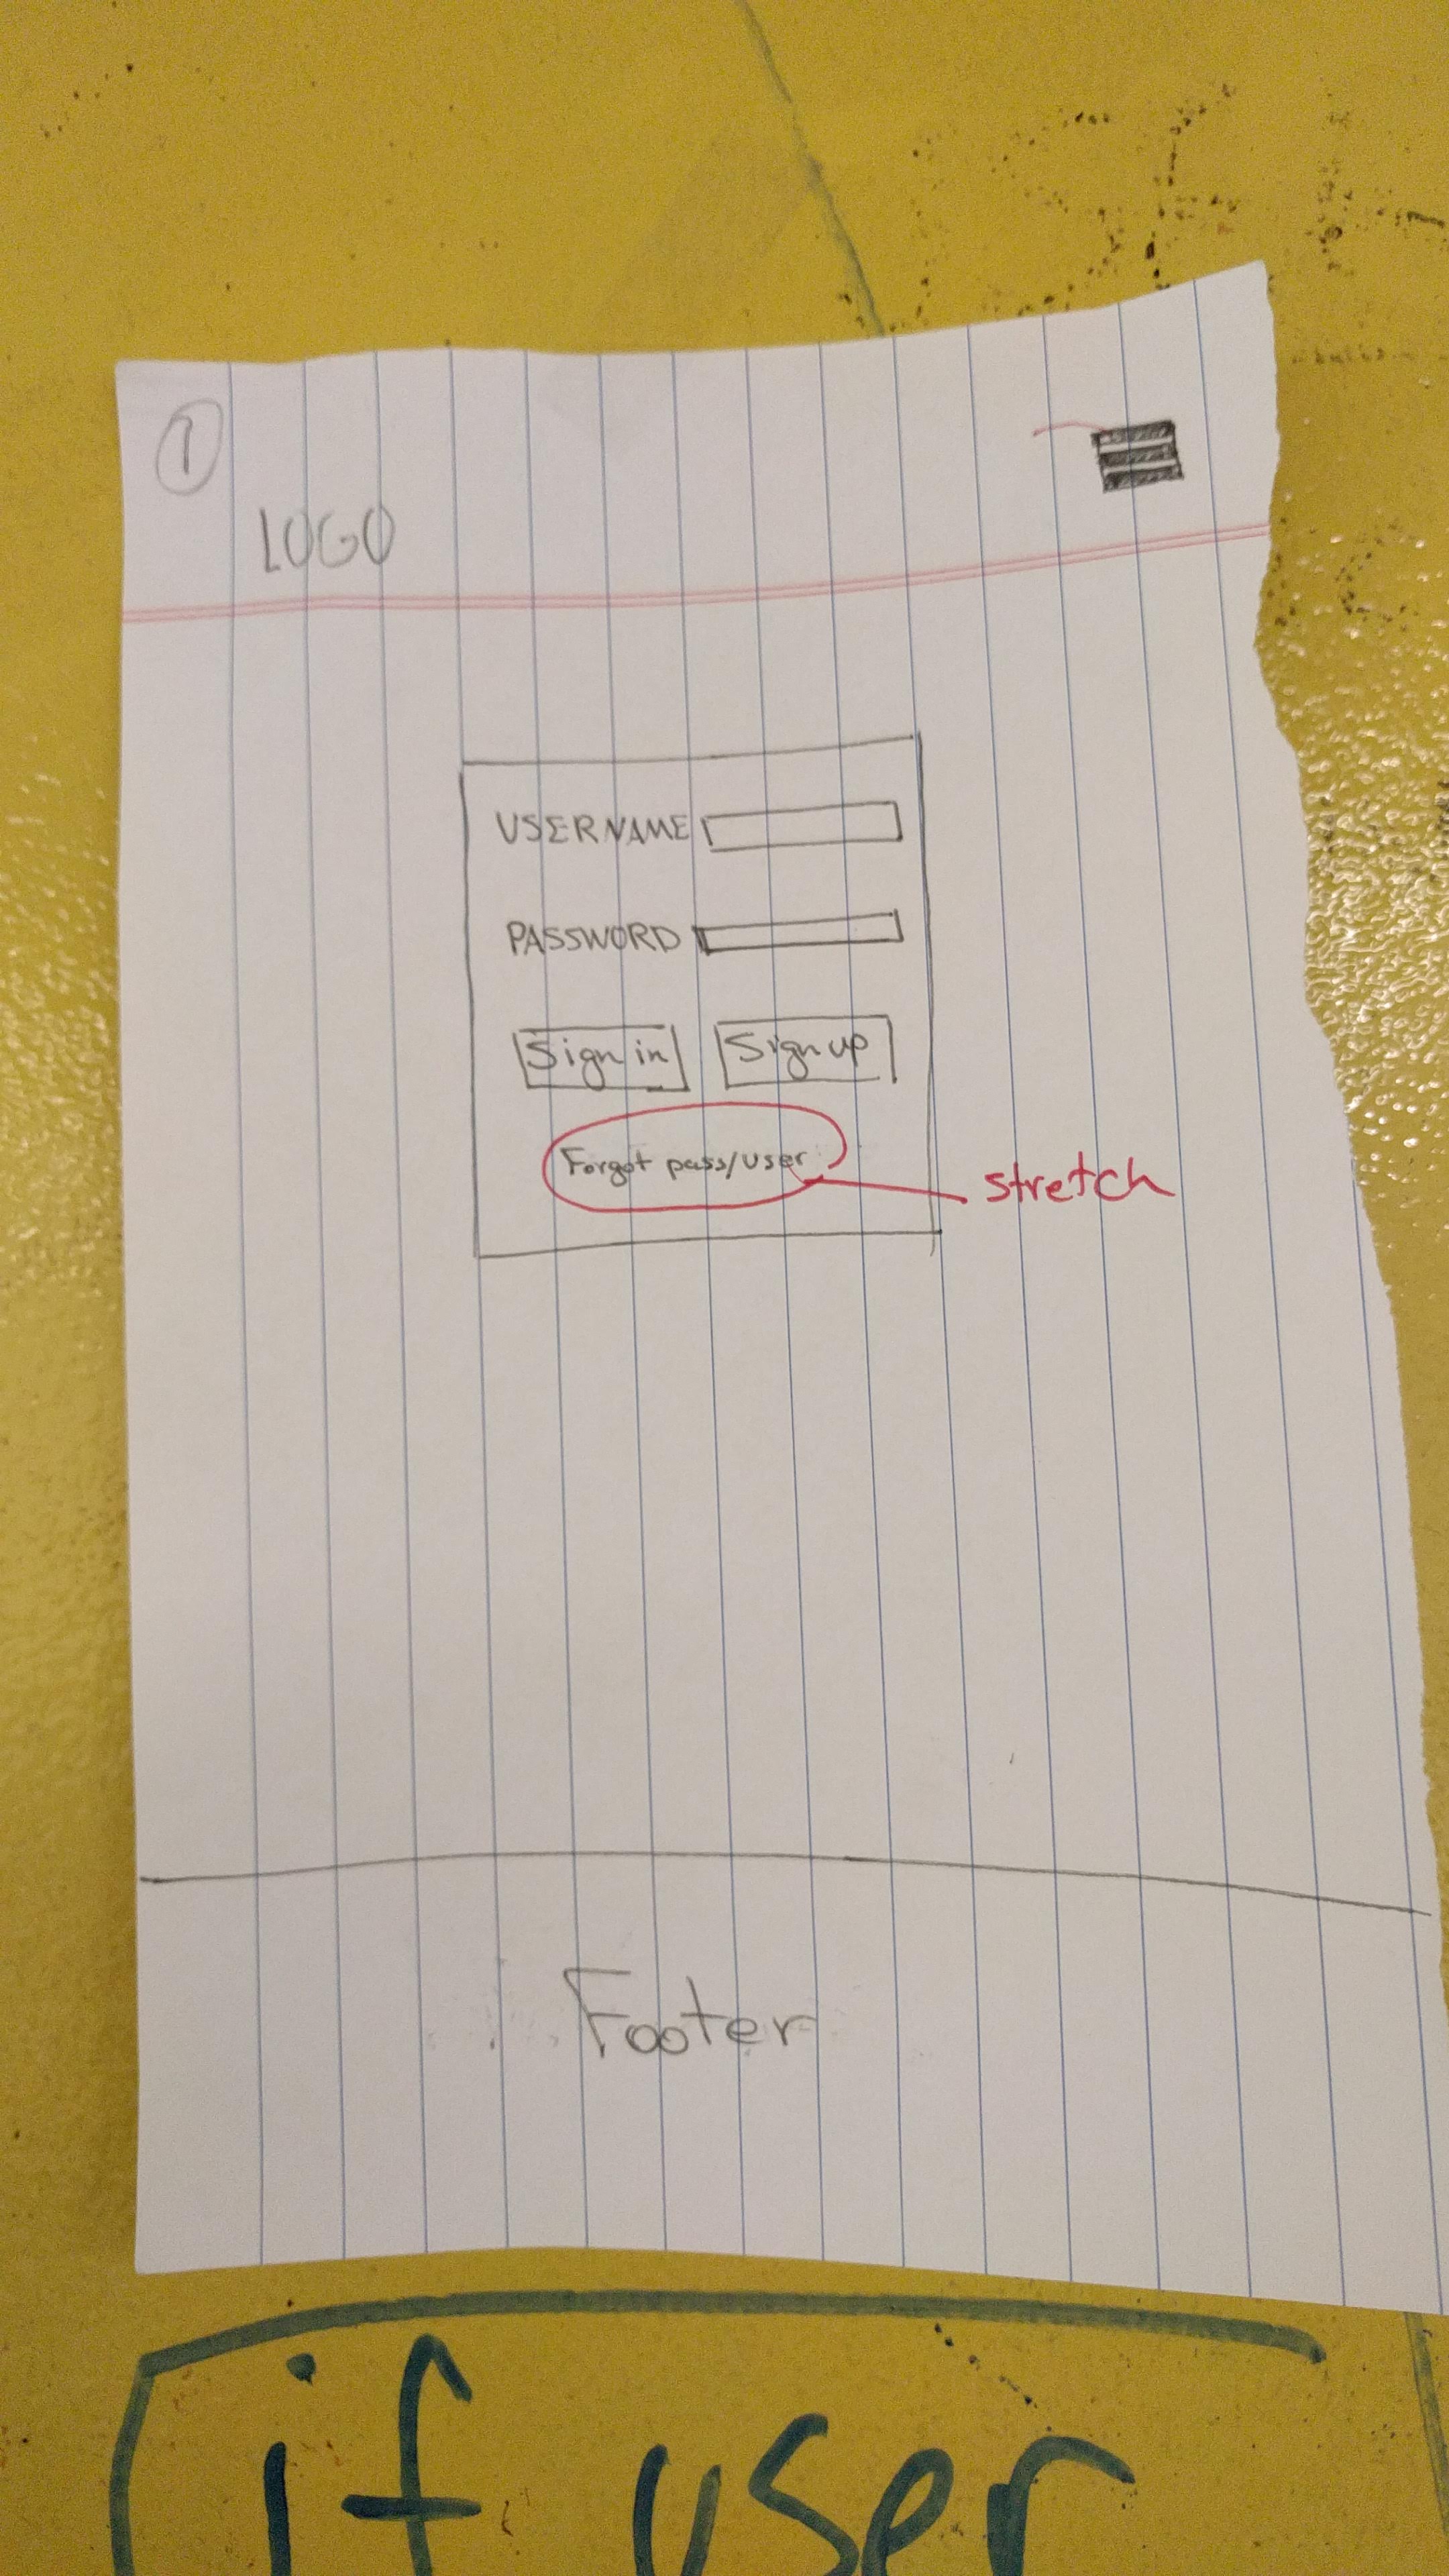 1
LOGO
USERNAME
PASSWORD
Sign in Sign up
Forgot pass/user
stretch
Footer
if user